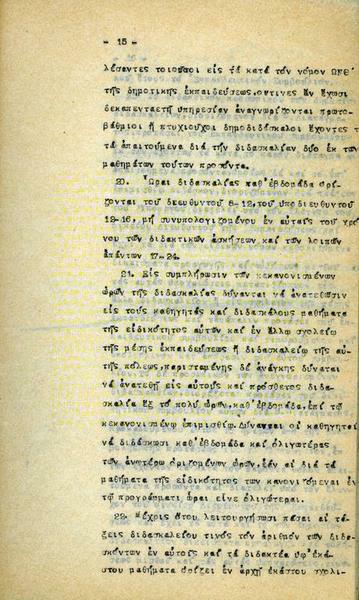 - 15 -
λέσαντες τοιοῦτοι εἰς τά κατά τόν νόμον
τῆς δημοτικῆς ἐκπαιδεύσεως, οἵτινες ἄν ἔχωσι
δεκαπενταετῆ ὑπηρεσίαν ἀναγνωρίζονται πρωτο-
βάθμιοι ἤ πτυχιοῦχοι δημοδιδάσκαλοι ἔχοντες τ
τά ἀπαιτούμενα διά τήν διδασκαλίαν δύο ἐκ τῶν
μαθημάτων τούτων προσόντα.
20. Ὧραι διδασκαλίας καθ' ἑβδομάδα ὁρί-
ζονται τοῦ διευθυντοῦ 8-12, τοῦ ὑποδιευθυντοῦ
12-16, μή συνυπολογιζομένου ἐν αὐταῖς τοῦ χρό
νου τῶν διδακτικῶν ἀσκήσεων καί τῶν λοιπῶν
ἁπάντων 17-24.
21. Εἰς συμπλήρωσιν τῶν κεκανονισμένων
ὡρῶν τῆς διδασκαλίας δύνανται νά ἀνατεθῶσιν
εἰς τούς καθηγητάς καί διδασκάλους μαθήματα
τῆς εἰδικότητος αὐτῶν καί ἐν ἄλλῳ σχολείῳ
τῆς μέσης ἐκπαιδεύσεως ἤ διδασκαλείῳ τῆς αὐ-
τῆς πόλεως, παρισταμένης δέ ἀνάγκης δύναται
νά ἀνατεθῇ εἰς αὐτούς καί πρόσθετος διδα-
σκαλία ἕξ τό πολύ ὡρῶν, καθ' ἑβδομάδα, ἐπί τῷ
κεκανονισμένῳ ἐπιμισθίῳ. Δύνανται οἱ καθηγηταί
νά διδάσκωσι καθ' ἑβδομάδα καί ὀλιγωτέρας
τῶν ἀνωτέρω ὁριζομένων ὡρῶν, ἐάν αἱ διά τά
μαθήματα τῆς εἰδικότητος τῶν κανονιζόμεναι ἐν
τῷ προγράμματι ὧραι εἶνε ὀλιγώτεραι.
22. Μέχρις ὅτου λειτουργήσωσι πᾶσαι αἱ τά-
ξεις διδασκαλείου τινός τόν ἀριθμόν τῶν διδα-
σκόντων ἐν αὐτοῖς καί τά διδακτέα ὑφ' ἑκά-
στου μαθήματα ὁρίζει ἐν ἀρχῇ ἑκάστου σχολι-